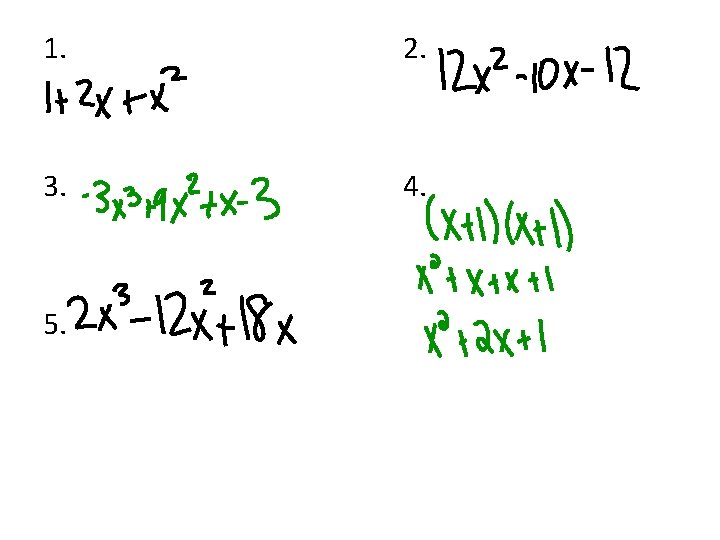 1. 1+2x+x²
2. 12x²-10x-12
3. -3x³+9x²+x-3
4. (x+1)(x+1)
x²+x+x+1
x²+2x+1
5. 2x³-12x²+18x